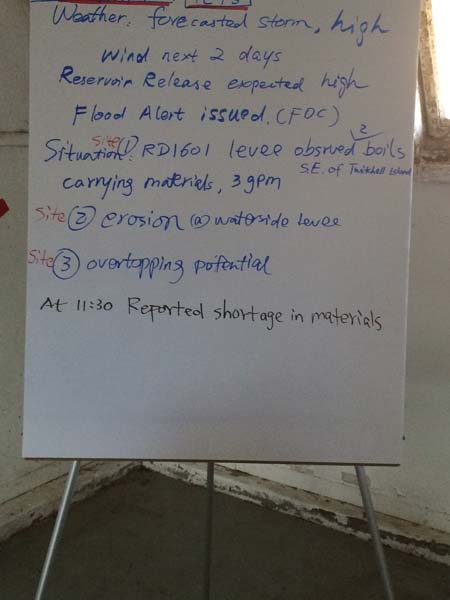 Weather: forecasted storm, high
Wind next 2 days
Reservoir Release expected high
Flood Alert issued. (FOC)
Situation: Site ① RD1601 levee obsrved 2 boils
S.E. of Twitchell Island
carrying materials, 3 gpm
Site ② erosion @ waterside levee
Site ③ overtopping potential
At 11:30 Reported shortage in materials